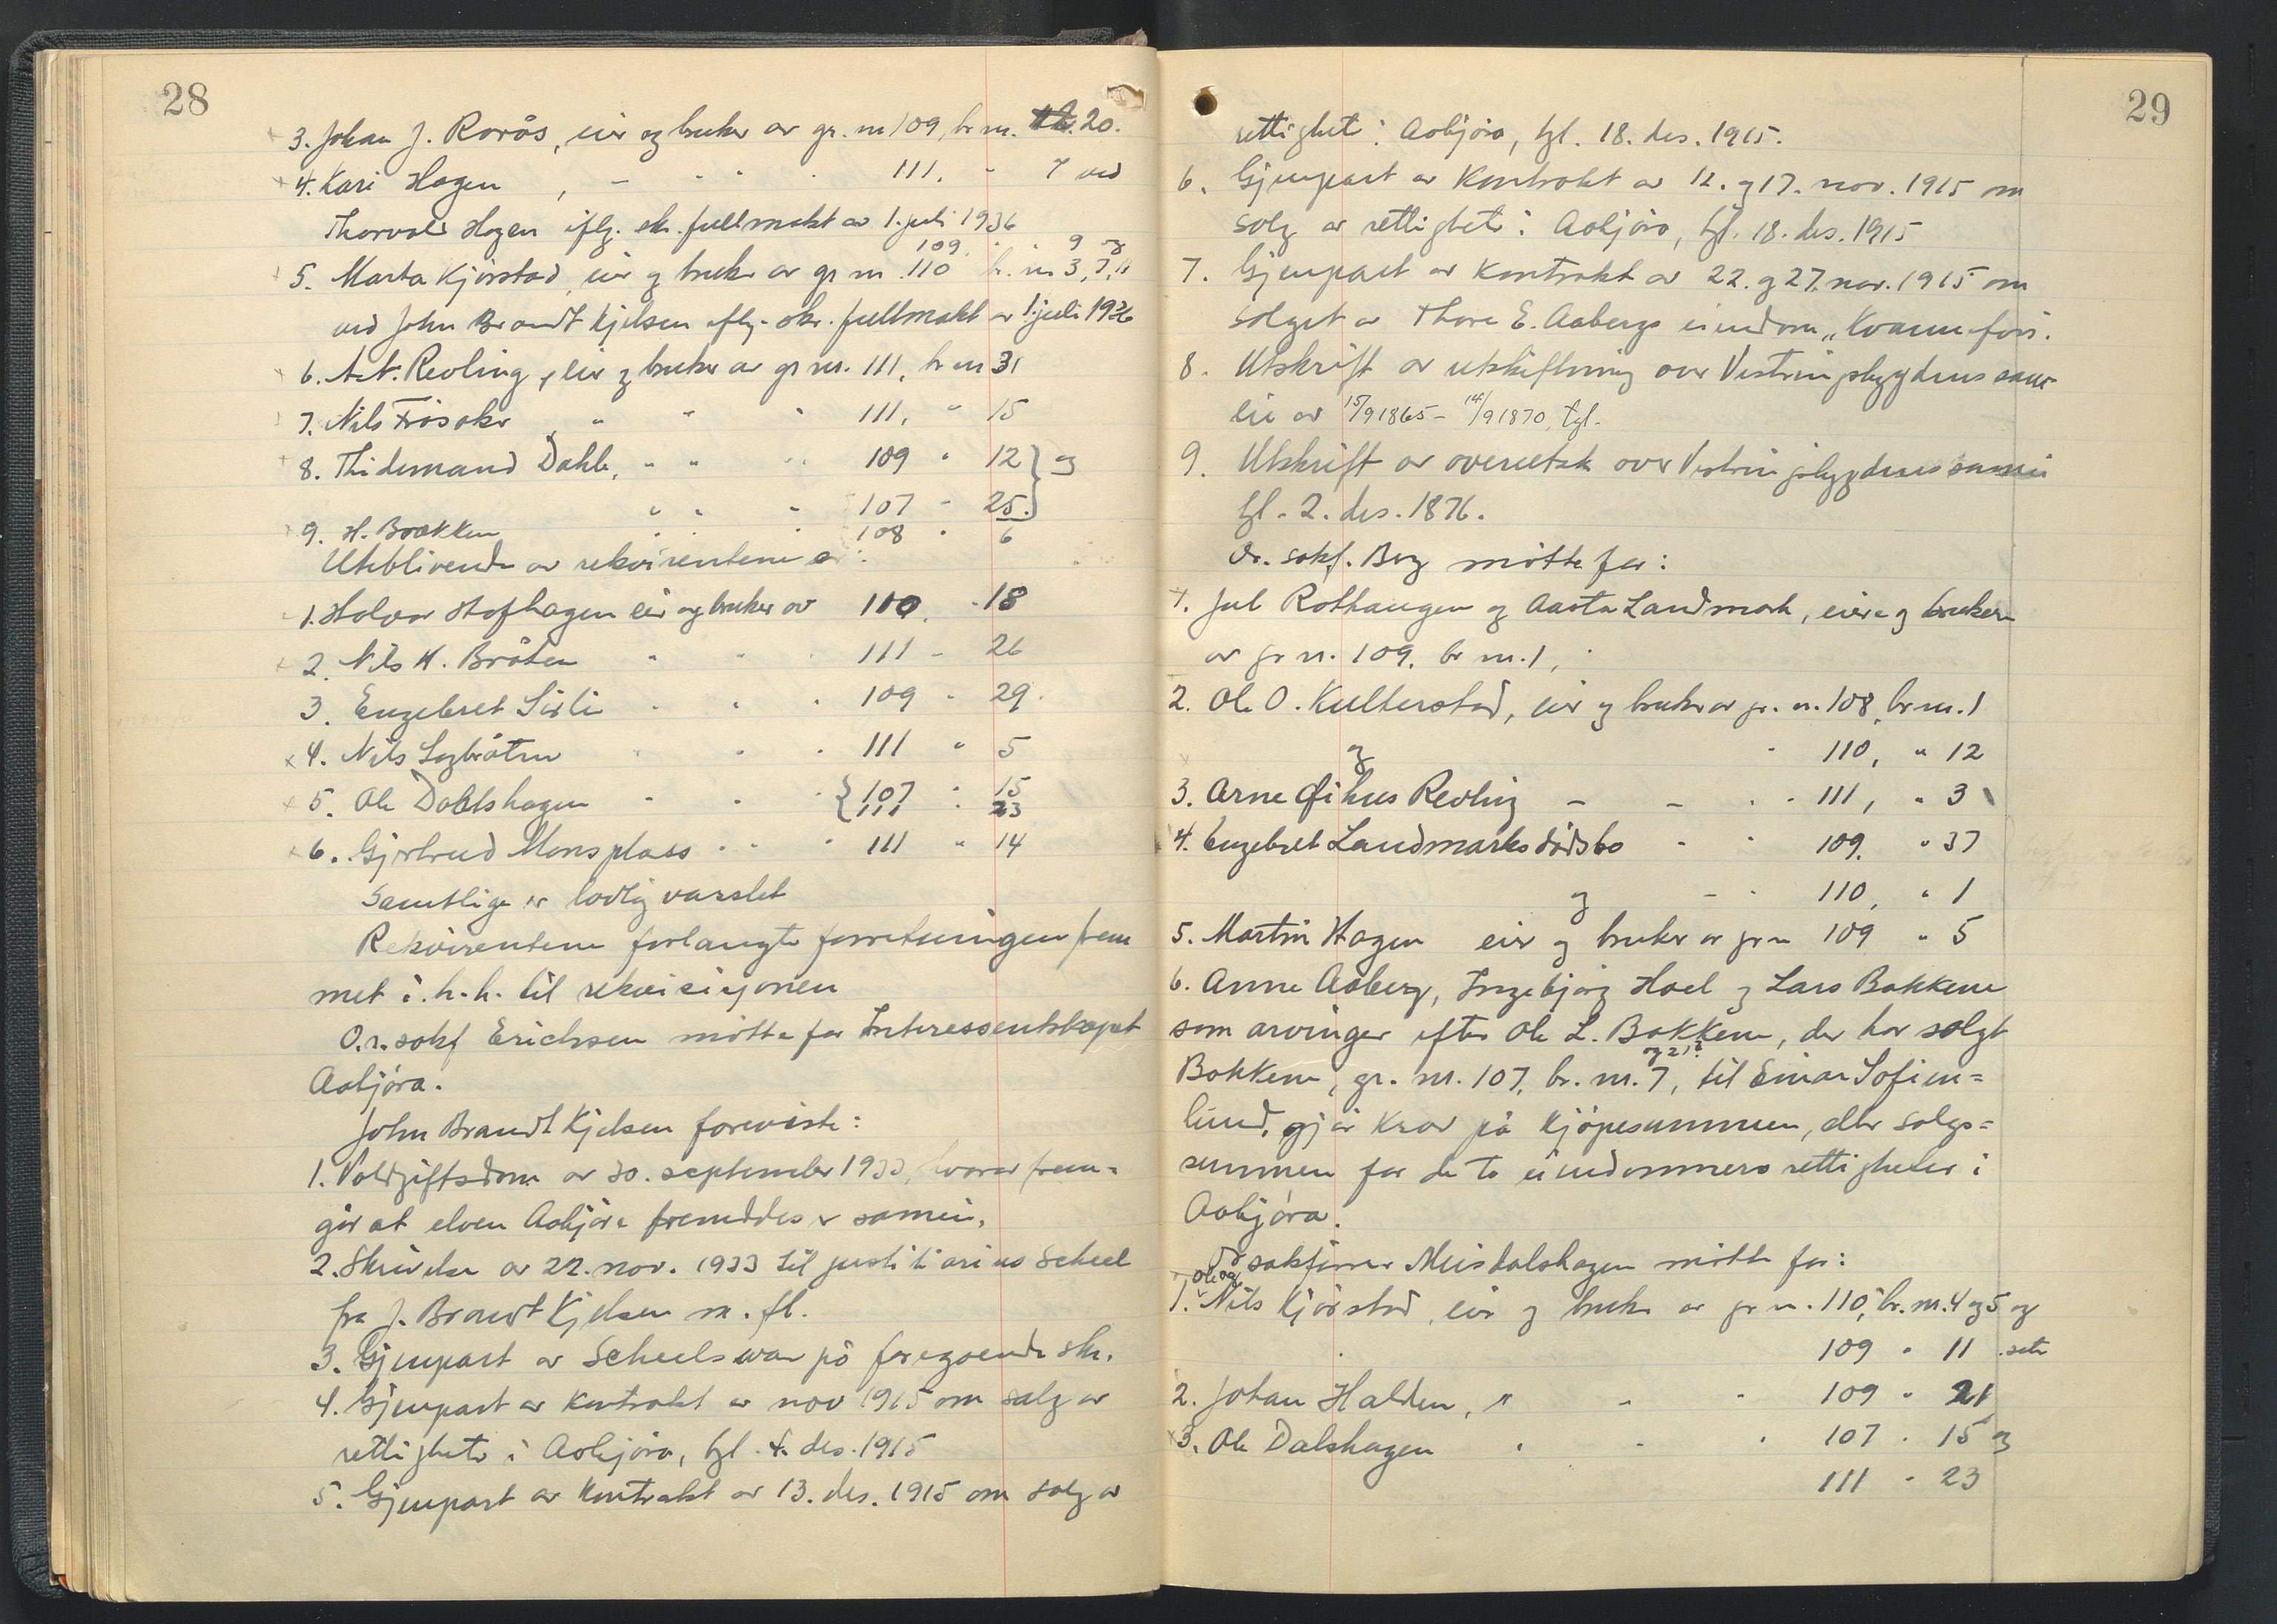 28
3. Johan J. Rorås, eier og bruker av gr. nr 109, br nr. 20.
4. Kari Hagen, - " " 111. - 7 ved
Thorvald Hagen iflg. skr. fullmakt av 1. juli 1936
109 " " 9 og
5. Marta Kjörstad, eier og bruker av gr nr. 110 br. nr 3, 7, 11
ved John Brandt Kjelsen iflg. skr. fullmakt av 1. juli 1936
6. A. N. Revling, eier og bruker av gr nr. 111, br nr 31
7. Nils Frösaker " " " 111, " 15
8. Thidemand Dahle, " " " 109 " 12 } og
" " " 107 - 25. }
9. H. Brækken " " " 108 " 6
Uteblivende av rekvirentene er:
1. Halvor Hofhagen eier og bruker av 110. - 18
2. Nils H. Bråten " " 111 - 26
3. Engebret Sisli " " " 109 - 29.
4. Nils Løgbråten " " " 111 " 5
5. Ole Dahlshagen " " " { 107 " 15
111 " 23
6. Gjertrud Monsplass " " " 111 " 14
Samtlige er lovlig varslet
Rekvirentene forlangte forretningen frem
met i. h. h. til rekvisisjonen
O.r. sakf Erichsen møtte for Interessentskapet
Aabjöra.
John Brandt Kjelsen foreviste:
1. Voldgiftsdom av 30. september 1933, hvorav frem=
går at elven Aabjöra fremdeles er sameie.
2. Skrivelse av 22. nov. 1933 til justitiarius Scheel
fra J. Brandt Kjelsen m. fl.
3. Gjenpart av Scheels svar på foregående skr.
4. Gjenpart av kontrakt av nov 1915 om salg av
rettigheter i Aabjöra, tgl. 4. des. 1915
5. Gjenpart av kontrakt av 13. des. 1915 om salg av
29
rettighet i Aabjöra, tgl. 18. des. 1915.
6. Gjenpart av kontrakt av 12. og 17. nov. 1915 om
salg av rettighet i Aabjöra, tgl. 18. des. 1915
7. Gjenpart av kontrakt av 22. og 27. nov. 1915 om
salget av Thore E. Aabergs eiendom „Kvannefoss.
8. Utskrift av utskiftning over Vestringsbygdens sam-
eie av 15/9 1865 - 14/9 1870, tgl.
9. Utskrift av overutsk over Vestringsbygdens sameie
tgl. 2. des. 1876.
Or. sakf. Berg møtte for:
1. Jul Rothaugen og Aasta Landmark, eiere og brukere
av gr nr. 109. br nr. 1,
2. Ole O. Kulterstad, eier og bruker av gr. nr. 108, br nr. 1
og " 110, " 12
3. Arne Revling - - " " 111, " 3
4. Engebret Landmarks dödsbo " " 109. " 37
og - " 110, " 1
5. Martin Hagen eier og bruker av gr nr 109 " 5
6. Anne Aaberg, Ingebjørg Hoel og Lars Bakkene
som arvinger efter Ole L. Bakkene, der har solgt
og 21?
Bakkene, gr. nr. 107, br. nr. 7, til Einar Sofien=
lund, gjør krav på kjöpesummen, eller salgs=
summen for de to eiendommers rettigheter i
Aabjöra.
Or sakfører Meisdalshagen møtte for:
Ole og
1. Nils Kjörstad, eier og bruker av gr nr. 110, br. nr. 4 og 5 og
109 " 11 seter
2. Johan Halden, " - " 109 " 21
3. Ole Dalshagen " - " 107 " 15 og
111 " 23